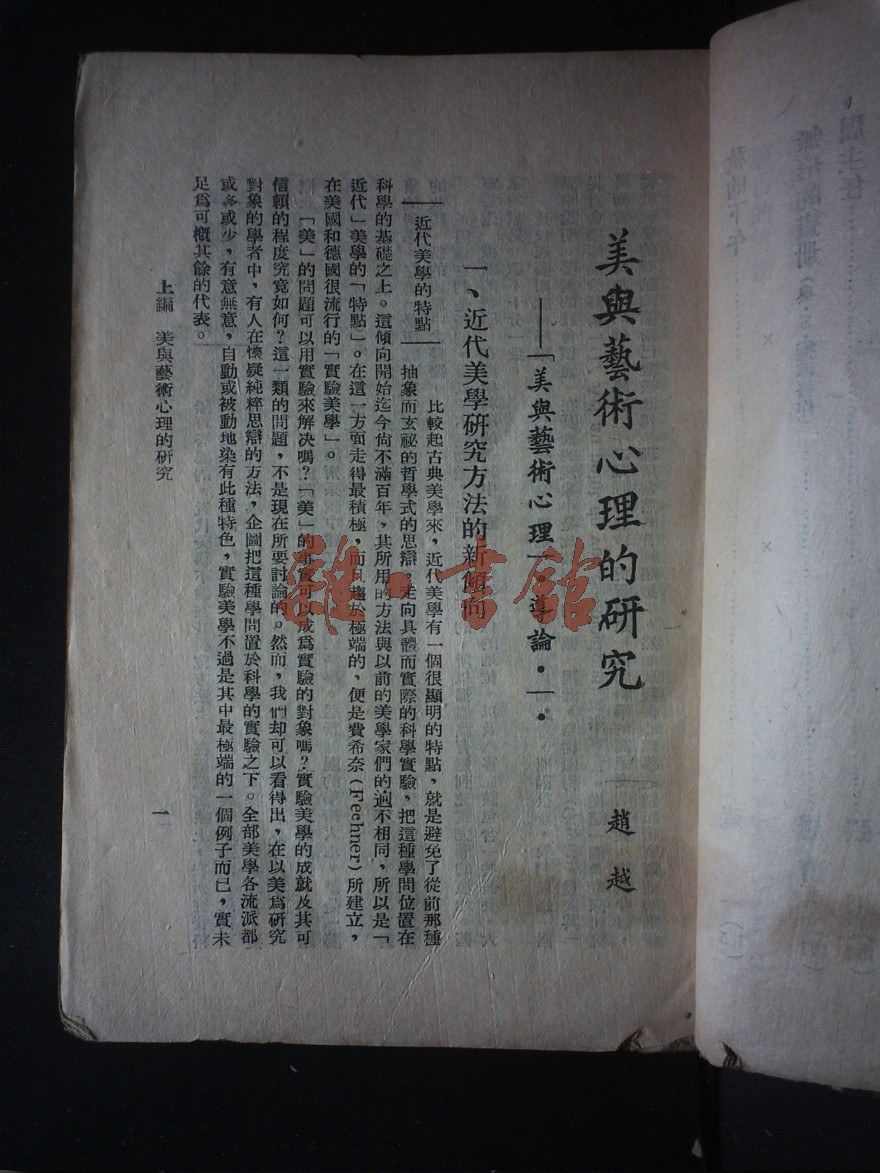 美與藝術心理的研究
趙越
——「美與藝術心理」‧導論‧——‧
一、近代美學研究方法的新傾向
近代美學的特點
比較起古典美學來，近代美學有一個很顯明的特點，就是避免了從前那種
抽象而玄祕的哲學式的思辯，走向具體而實際的科學實驗，把這種學問位置在
科學的基礎之上。這傾向開始迄今尙不滿百年，其所用的方法與以前的美學家們的逈不相同，所以是「
近代」美學的「特點」。在這一方面走得最積極，而且趨於極端的，便是費希奈(Fechner)所建立，
在美國和德國很流行的「實驗美學」。
「美」的問題可以用實驗來解決嗎？「美」的事實可以成爲實驗的對象嗎？實驗美學的成就及其可
信賴的程度究竟如何？這一類的問題，不是現在所要討論的。然而，我們却可以看得出，在以美爲研究
對象的學者中，有人在懷疑純粹思辯的方法，企圖把這種學問置於科學的實驗之下。全部美學各流派都
或多或少，有意無意，自動或被動地染有此種特色，實驗美學不過是其中最極端的一個例子而已，實未
足爲可概其餘的代表。
上編　美與藝術心理的研究
一
雜‧書館